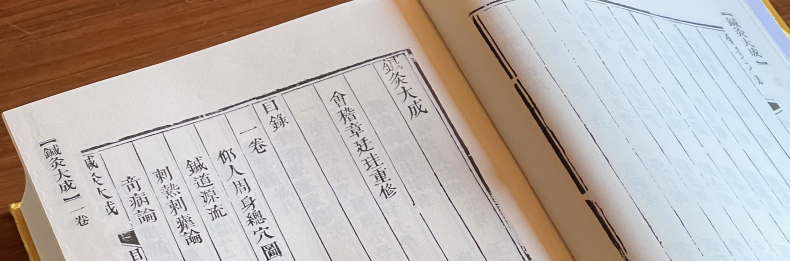 鍼灸大成
會稽章廷珪重修
目錄
一卷
仰人周身總穴圖
鍼道源流
刺熱刺瘧論
奇病論
鍼灸大成
目
【鍼灸大成】一卷
【鍼灸大成】